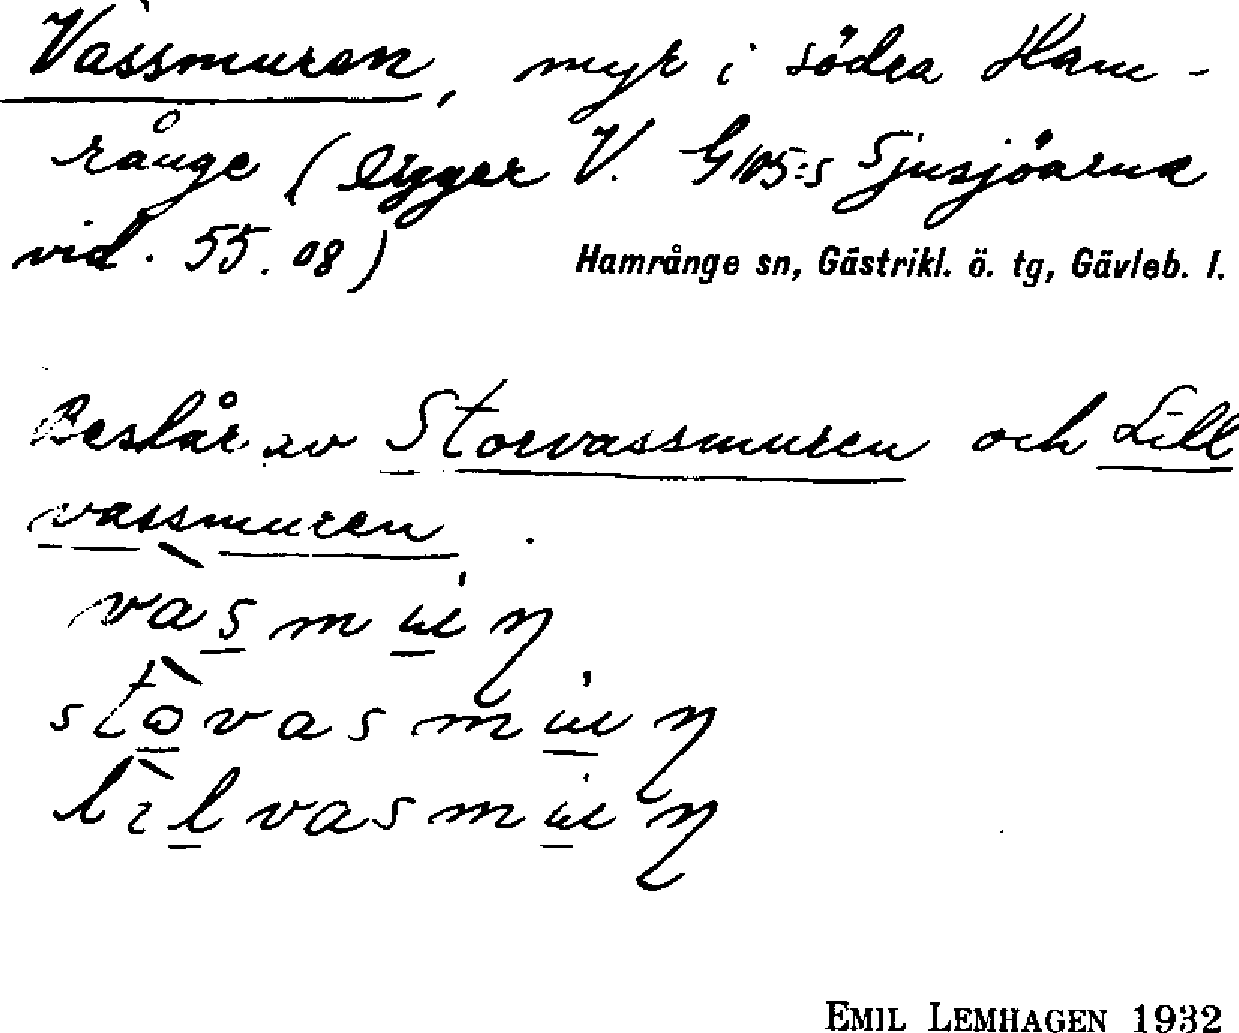 Vassmuren, myr i södra Ham-
rånge (ligger V. G105:s Sjusjöarna
vid. 55.08)
Hamrånge sn, Gästrikl. ö. tg, Gävleb. l.
Består av Storvassmuren och Lill
vassmuren.
vàsmuɳ
stòvasmuɳ
lìlvasmuɳ
EMIL LEMHAGEN 1932